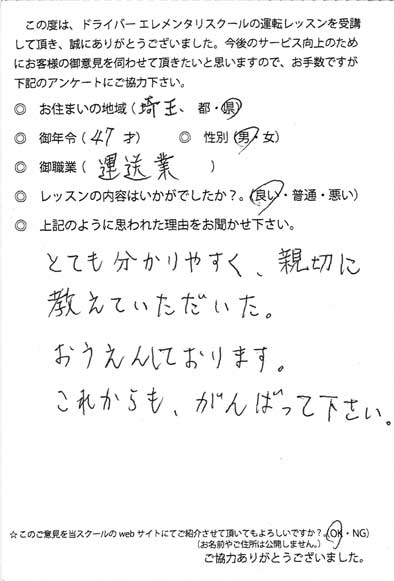 この度は、ドライバーエレメンタリスクールの運転レッスンを受講
して頂き、誠にありがとうございました。今後のサービス向上のため
にお客様の御意見を伺わせて頂きたいと思いますので、お手数ですが
下記のアンケートにご協力下さい。
◎ お住まいの地域(埼玉、都・県)
◎ 御年令(47 才) ◎ 性別(男・女)
◎ 御職業(運送業)
◎ レッスンの内容はいかがでしたか?。(良い・普通・悪い)
◎ 上記のように思われた理由をお聞かせ下さい。
とても分かりやすく、親切に
教えていただいた。
おうえんしております。
これからも、がんばって下さい。
☆このご意見を当スクールのwebサイトにてご紹介させて頂いてもよろしいですか?。(OK・NG)
(お名前やご住所は公開しません。)
ご協力ありがとうございました。